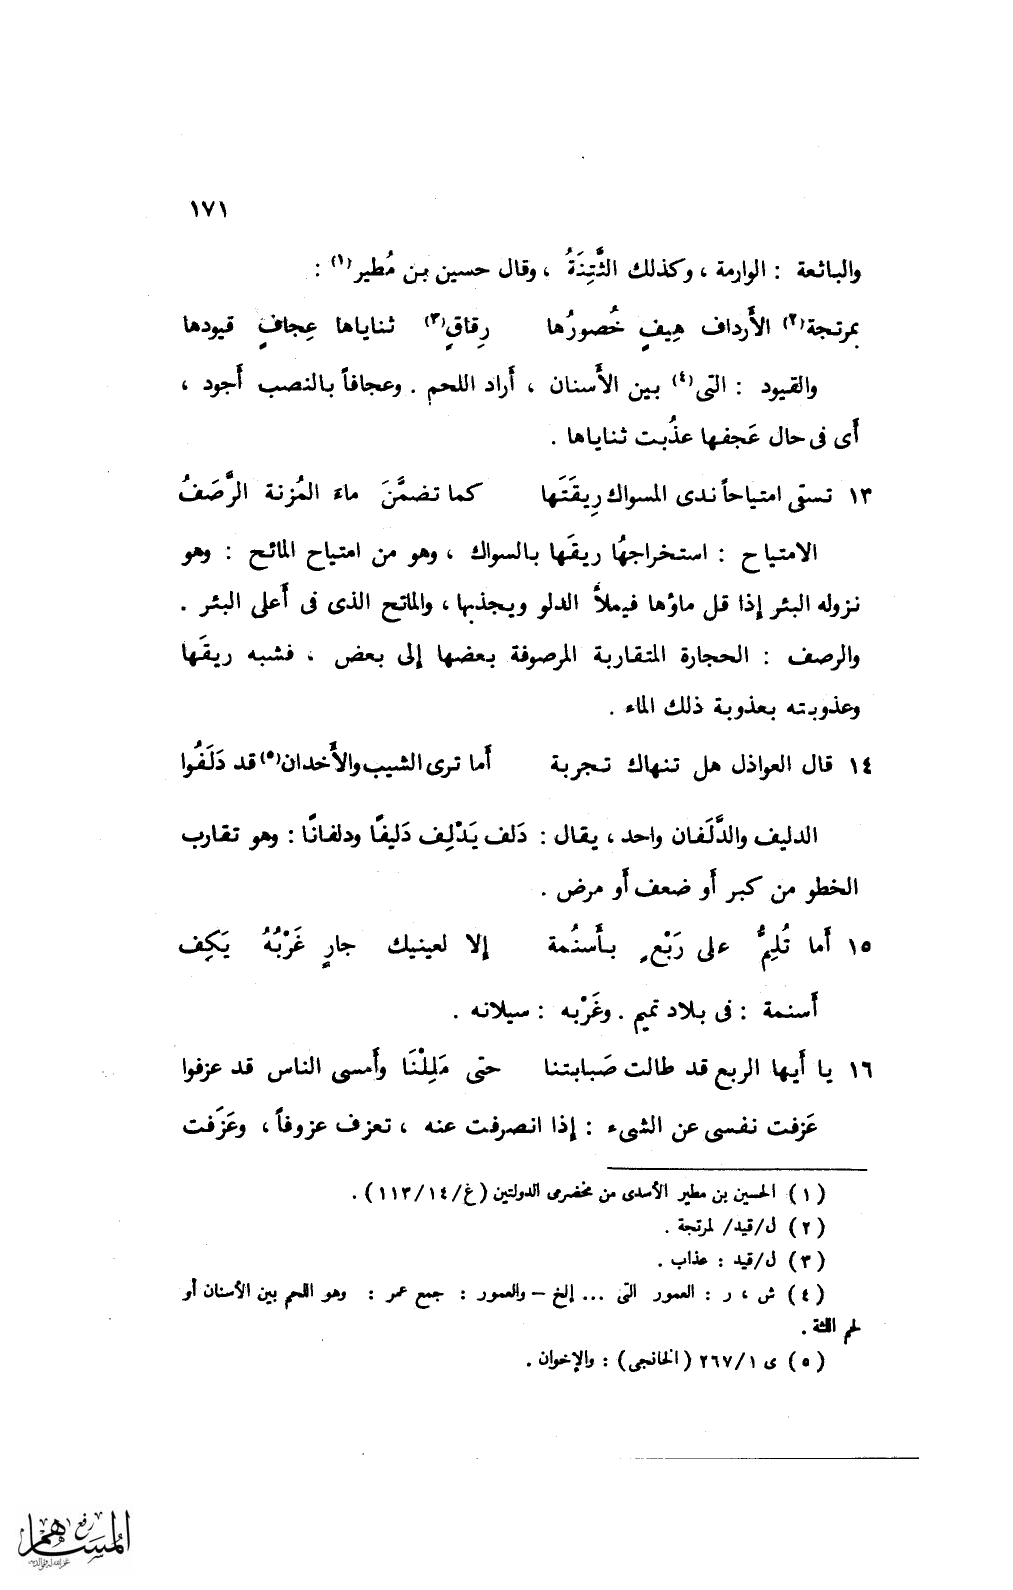 ١٧١
والباثعة : الوارمة ، وكذلك الثَّتِنَةُ ، وقال حسين بن مُطير(١) :
بمرتجة(٢) الأَرداف هِيفٍ خُصورُها رِقاقٍ(٣) ثناياها عِجافٍ قيودها
والقيود : التى(٤) بين الأَسنان ، أَراد اللحم . وعجافاً بالنصب أَجود ،
أَى فى حال عَجفها عذُبت ثناياها .
١٣ تسقى امتياحاً ندى المسواك رِيقَتَها كما تضمَّنَ ماءَ المُزنة الرَّصَفُ
الامتياح : استخراجهُا ريقَها بالسواك ، وهو من امتياح المائح : وهو
نزوله البئر إذا قل ماؤها فيملأُ الدلو ويجذبها ، والماتح الذى فى أَعلى البئر .
والرصف : الحجارة المتقاربة المرصوفة بعضها إلى بعض ، فشبه ريقَها
وعذوبته بعذوبة ذلك الماء .
١٤ قال العواذل هل تنهاك تجربة أَما ترى الشيب والأَخدان(٥) قد دَلَفُوا
الدليف والدَّلَفان واحد ، يقال : دَلف يَدْلِف دَليفًا ودلفانًا : وهو تقارب
الخطو من كبر أَو ضعف أَو مرض .
١٥ أَما تُلِمُّ على رَبْعٍ بأَسنُمة إلا لعينيك جارٍ غَرْبُهُ يَكِف
أَسنمة : فى بلاد تميم . وغَرْبه : سيلانه .
١٦ يا أَيها الربع قد طالت صَبابتنا حتى مَلِلْنَا وأَمسى الناس قد عزفوا
عَزفت نفسى عن الشىء : إذا انصرفت عنه ، تعزف عزوفاً ، وعَزَفت
(١) الحسين بن مطير الأسدى من مخضرمى الدولتين (غ/١٤/١١٣) .
(٢) ل/قيد/ لمرتجة .
(٣) ل/قيد : عذاب .
(٤) ش ، ر : العمور التى ... إلخ – والعمور : جمع عمر : وهو اللحم بين الأسنان أو
لحم اللثة .
(٥) ى ٢٦٧/١ (الخانجى) : والإخوان .
رفع
المساهم